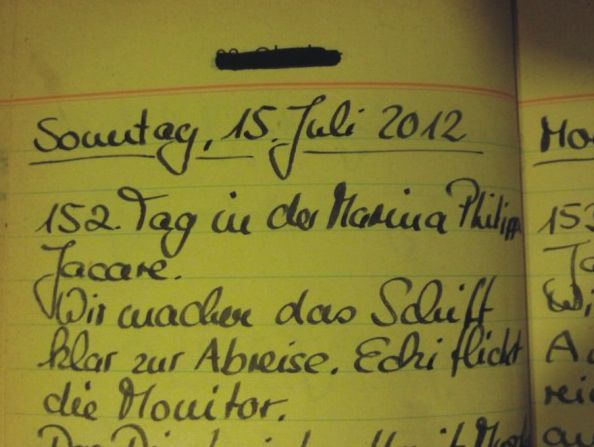 Sonntag, 15. Juli 2012
152. Tag in der Marina Philipp
Jacare.
Wir machen das Schiff
klar zur Abreise. Ecki flickt
die Monitor.
153